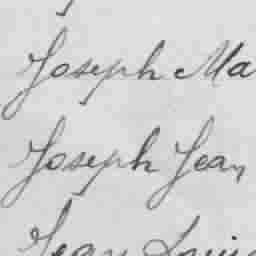 Joseph Ma
Joseph Jean
Jean Louis